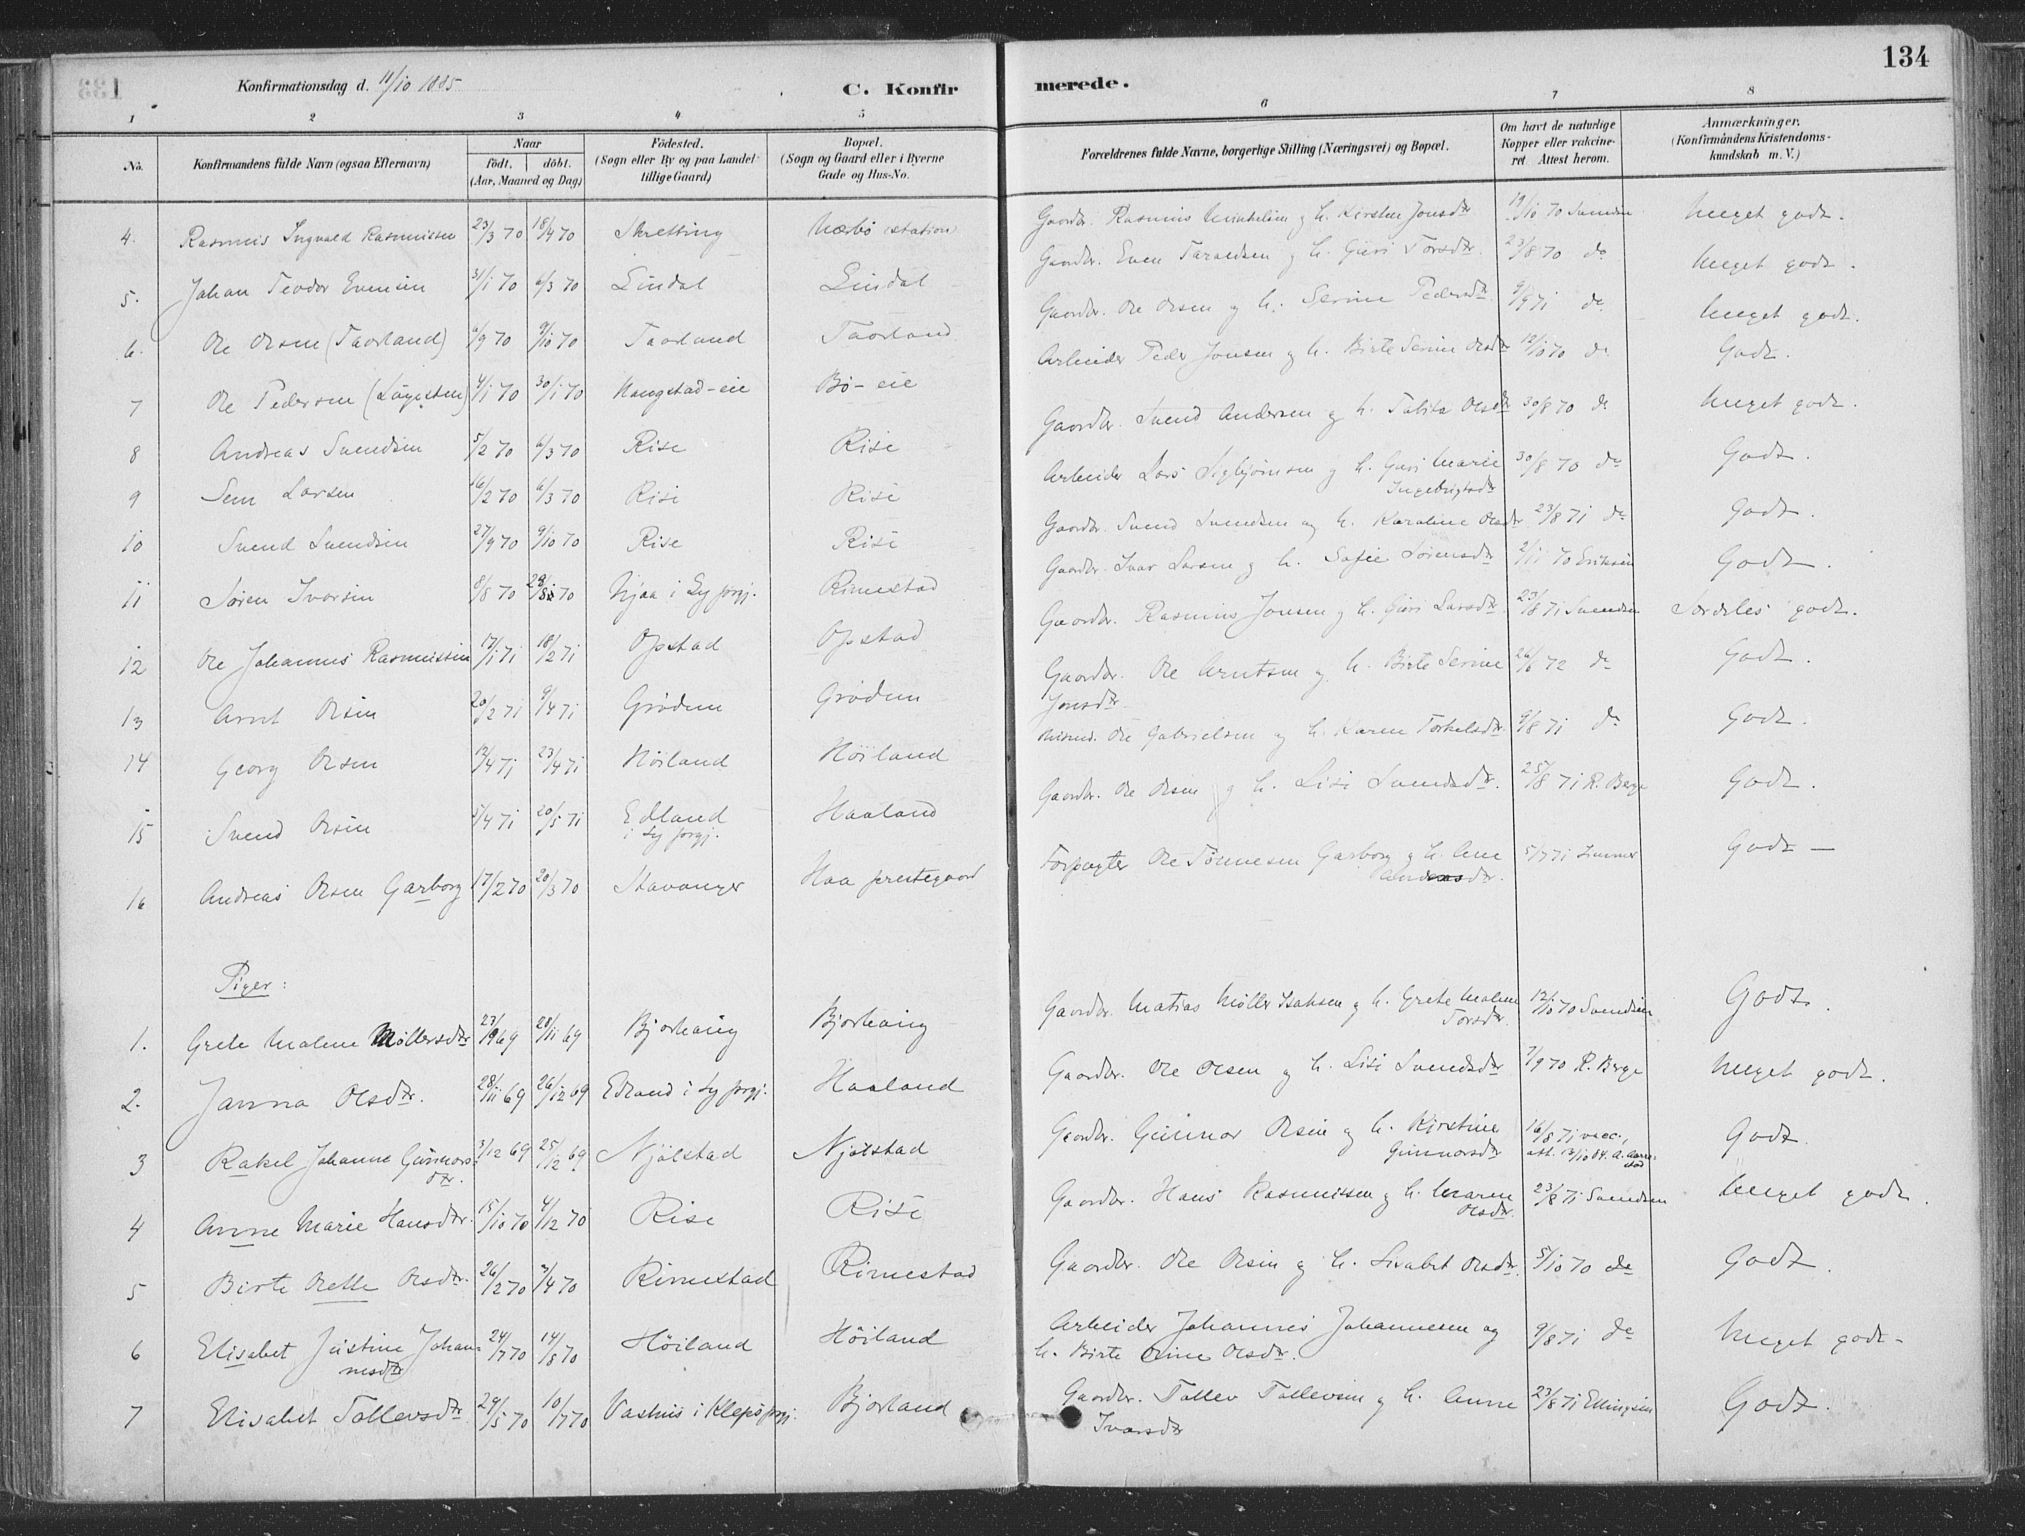 134
Konfirmationsdag d. 11/10 1885
C. Konfirmerede.
1 2 3 4 5 6 7 8
No. Konfirmandens fulde Navn (ogsaa Efternavn) Naar födt. döbt. (Aar, Maaned og Dag) Födested. (Sogn eller By og paa Landet tillige Gaard) Bopæl. (Sogn og Gaard eller i Byerne Gade og Hus-No. Forældrenes fulde Navne, borgerlige Stilling (Næringsvei) og Bopæl. Om havt de naturlige Kopper eller vakcineret. Attest herom. Anmærkninger. (Konfirmandens Kristendomskundskab m. V.)
4. Rasmus Ingvald Rasmussen 23/3 70 18/4 70 Skretting Nærbö station Gaardbr. Rasmus h. Kirsten Jonsdtr 19/10 70 Svendsen Meget godt.
5. Johan Teodor Evensen 31/1 70 6/3 70 Lindal Lindal Gaardbr. Even Taraldsen g h. Guri Torsdtr. 23/8 70 do Meget godt.
6. Ole Olsen (Taorland) 6/9 70 9/10 70 Taorland Taorland Gaardbr. Ole Olsen g h. Serine Pedersdtr 9/9 71 do Meget godt.
7 Ole Pedersen 4/1 70 30/1 70 Haugstad-eie Bö-eie Arbeider Peder Jonsen g h. Birte Serine Olsdtr 12/10 70 do Godt.
8 Andreas Svendsen 5/2 70 6/3 70 Rise Rise Gaardbr. Svend Andersen g h. Talita Olsdtr 30/8 70 do Meget godt.
9 Sem Larsen 16/2 70 6/3 70 Rise Rise Arbeider Lars Sigbjörnsen g h. Guri Marie Ingebrigtsdtr 30/8 70 do Godt.
10 Svend Svendsen 27/9 70 9/10 70 Rise Rise Gaardbr. Svend Svendsen og h. Karoline Olsdtr 23/8 71 do Godt.
11 Sören Ivarsen 8/8 70 28/8 70 Njaa i Ly prgj. Rimestad Gaardbr. Ivar Larsen g h. Sofie Sörensdtr 2/11 70 Eriksen Godt.
12 Ole Johannes Rasmussen 17/1 71 18/2 71 Opstad Opstad Gaardbr. Rasmus Jonsen g h. Guri Larsdtr 23/8 71 Svendsen Særdeles godt.
13 Arnt Olsen 20/2 71 9/4 71 Grödem Grödem Gaardbr. Ole Arntsen g h. Birte Serine Jonsdtr 26/6 72 do Godt.
14 Georg Olsen 12/4 71 23/4 71 Höiland Höiland Ole Gabrielsen g h. Karen Torkelsdtr 9/8 71 do Godt.
15 Svend Olsen 5/4 71 20/5 71 Edland i Ly prgj. Haaland Gaardbr. Ole Olsen g h. Lisi Svendsdtr. 25/8 71 R. Berge Godt.
16 Andreas Olsen Garborg 17/2 70 20/3 70 Stavanger Haa prestegaard Forpagter Ole Tönnesen Garborg g h. Ane 5/7 71 Godt –
Piger:
1. Grete Malene Möllersdtr 23/ 69 28/11 69 Bjorhaug Bjorhaug Gaardbr. Matias Möller Isaksen g h. Grete Malene Torsdtr. 12/10 70 Svendsen Godt.
2. Janna Olsdtr. 28/11 69 26/12 69 Edland i Ly prgj. Haaland Gaardbr. Ole Olsen g h. Lisi Svendsdtr 7/9 70 R. Berge Meget godt.
3 Rakel Johanne Gunnarsdtr. 3/12 69 25/12 69 Njölstad Njölstad Gaardbr. Gunnar Olsen g h. Kirstine Gunnarsdtr 16/8 71 vacc., att. 13/10 84. Godt.
4 Anne Marie Hansdtr. 15/10 70 4/12 70 Rise Rise Gaardbr. Hans Rasmussen g h. Maren Olsdtr. 23/8 71 Svendsen Meget godt.
5 Birte Olette Olsdtr. 26/2 70 3/4 70 Rimestad Rimestad Gaardbr. Ole Olsen g h. Lisabet Olsdtr. 5/10 70 do Godt.
6 Elisabet Justine Johannesdtr 24/7 70 14/8 70 Höiland Höiland Arbeider Johannes Johannesen og h. Birte Oline Olsdtr. 9/8 71 do Meget godt-
7 Elisabet Tollevsdtr 29/5 70 10/7 70 Vashus i Klep prgj. Bjorland Gaardbr. Tollev Tollevsen g h. Anne Ivarsdtr 23/8 71 Ellingsen Godt.